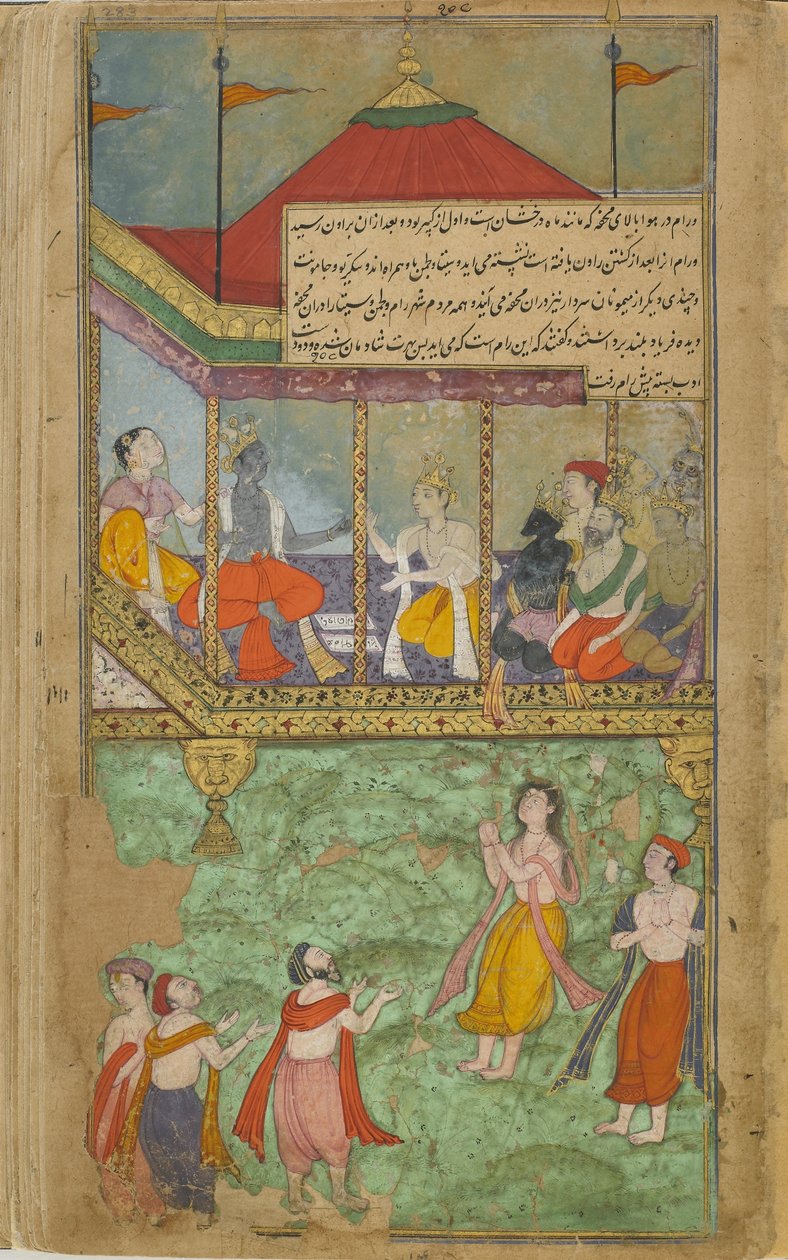 283
ورام در هوا بالای محفه که مانند ماه درخشان است و اول از کبیر بود و بعد ازان براون رسید
ورام انرا بعد از کشتن راون یافته است نشسته می اید و سیتا و لچمن باو همراه اند و سکریو و جامونت
و چندی دیگر از میمونان سردار نیز دران محفه می آیند و همه مردم شهر رام و لچمن و سیتا را دران محفه
دیده فریاد بلند برداشتند و گفتند که این رام است که می اید پس بهرت شادمان شده و دو دست
ادب بسته پیش رام رفت